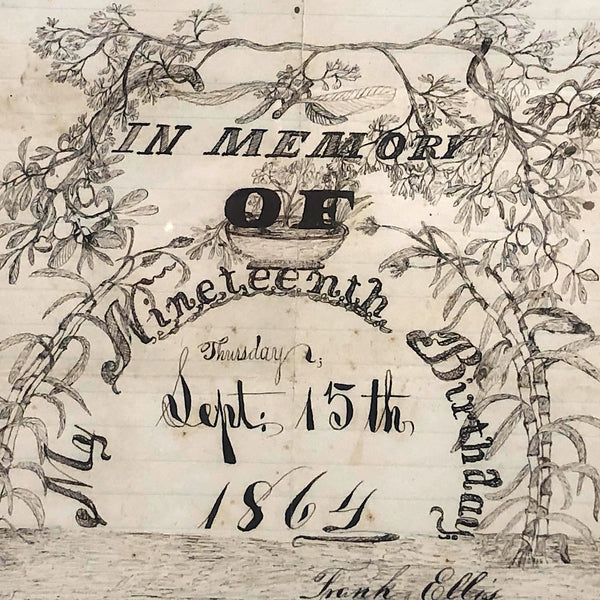 IN MEMORY
OF
My Nineteenth Birthday
Thursday,
Sept. 15th,
1864
Frank Ellis